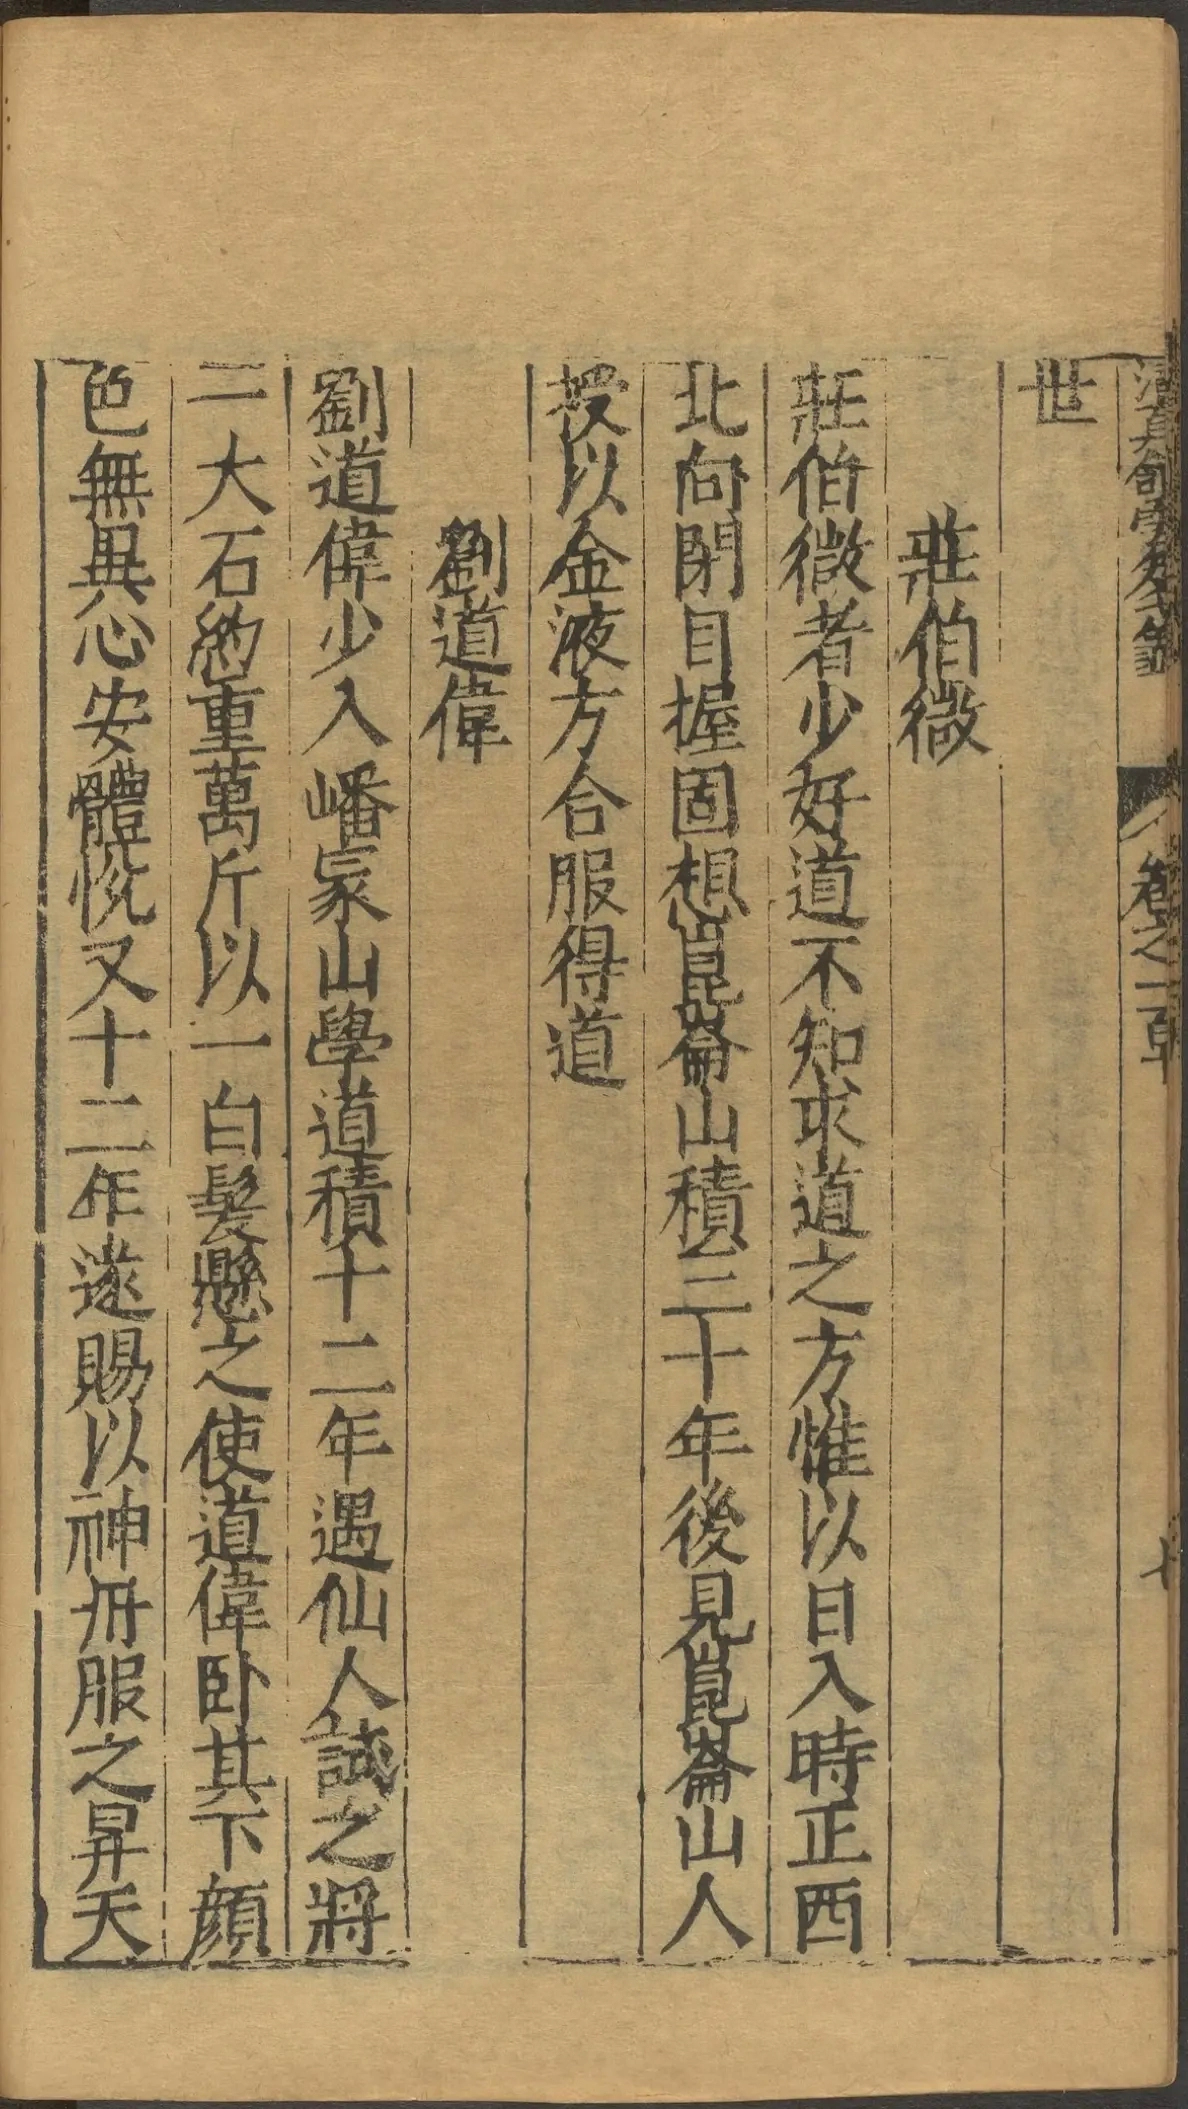 世
莊伯微
莊伯微者少好道不知求道之方惟以日入時正西
北向閉目握固想崑崙山積三十年後見崑崙山人
授以金液方合服得道
劉道偉
劉道偉少入嶓冢山學道積十二年遇仙人試之將
一大石約重萬斤以一白髮懸之使道偉卧其下顏
色無異心安體悅又十二年遂賜以神丹服之昇天